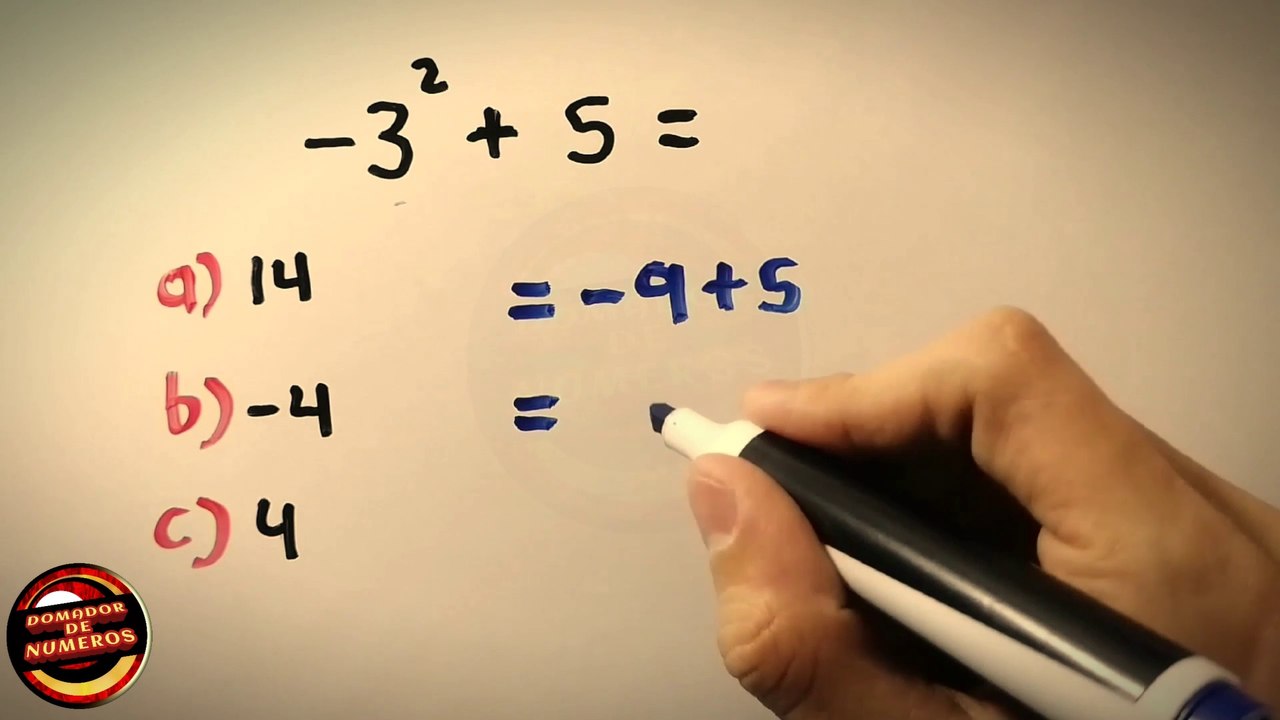 -3² + 5 =
a) 14
= -9+5
b) -4
=
c) 4
DOMADOR
DE
NUMEROS